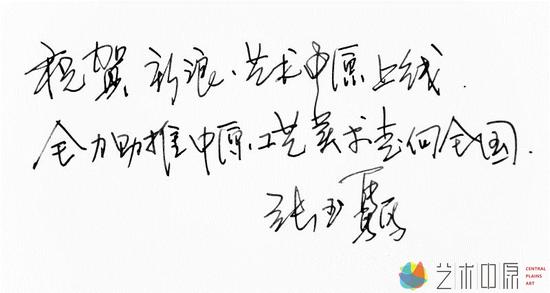 祝賀新浪·艺术中原上线.
全力助推中原工艺美术走向全国.
张玉
艺术中原
CENTRAL
PLAINS
ART